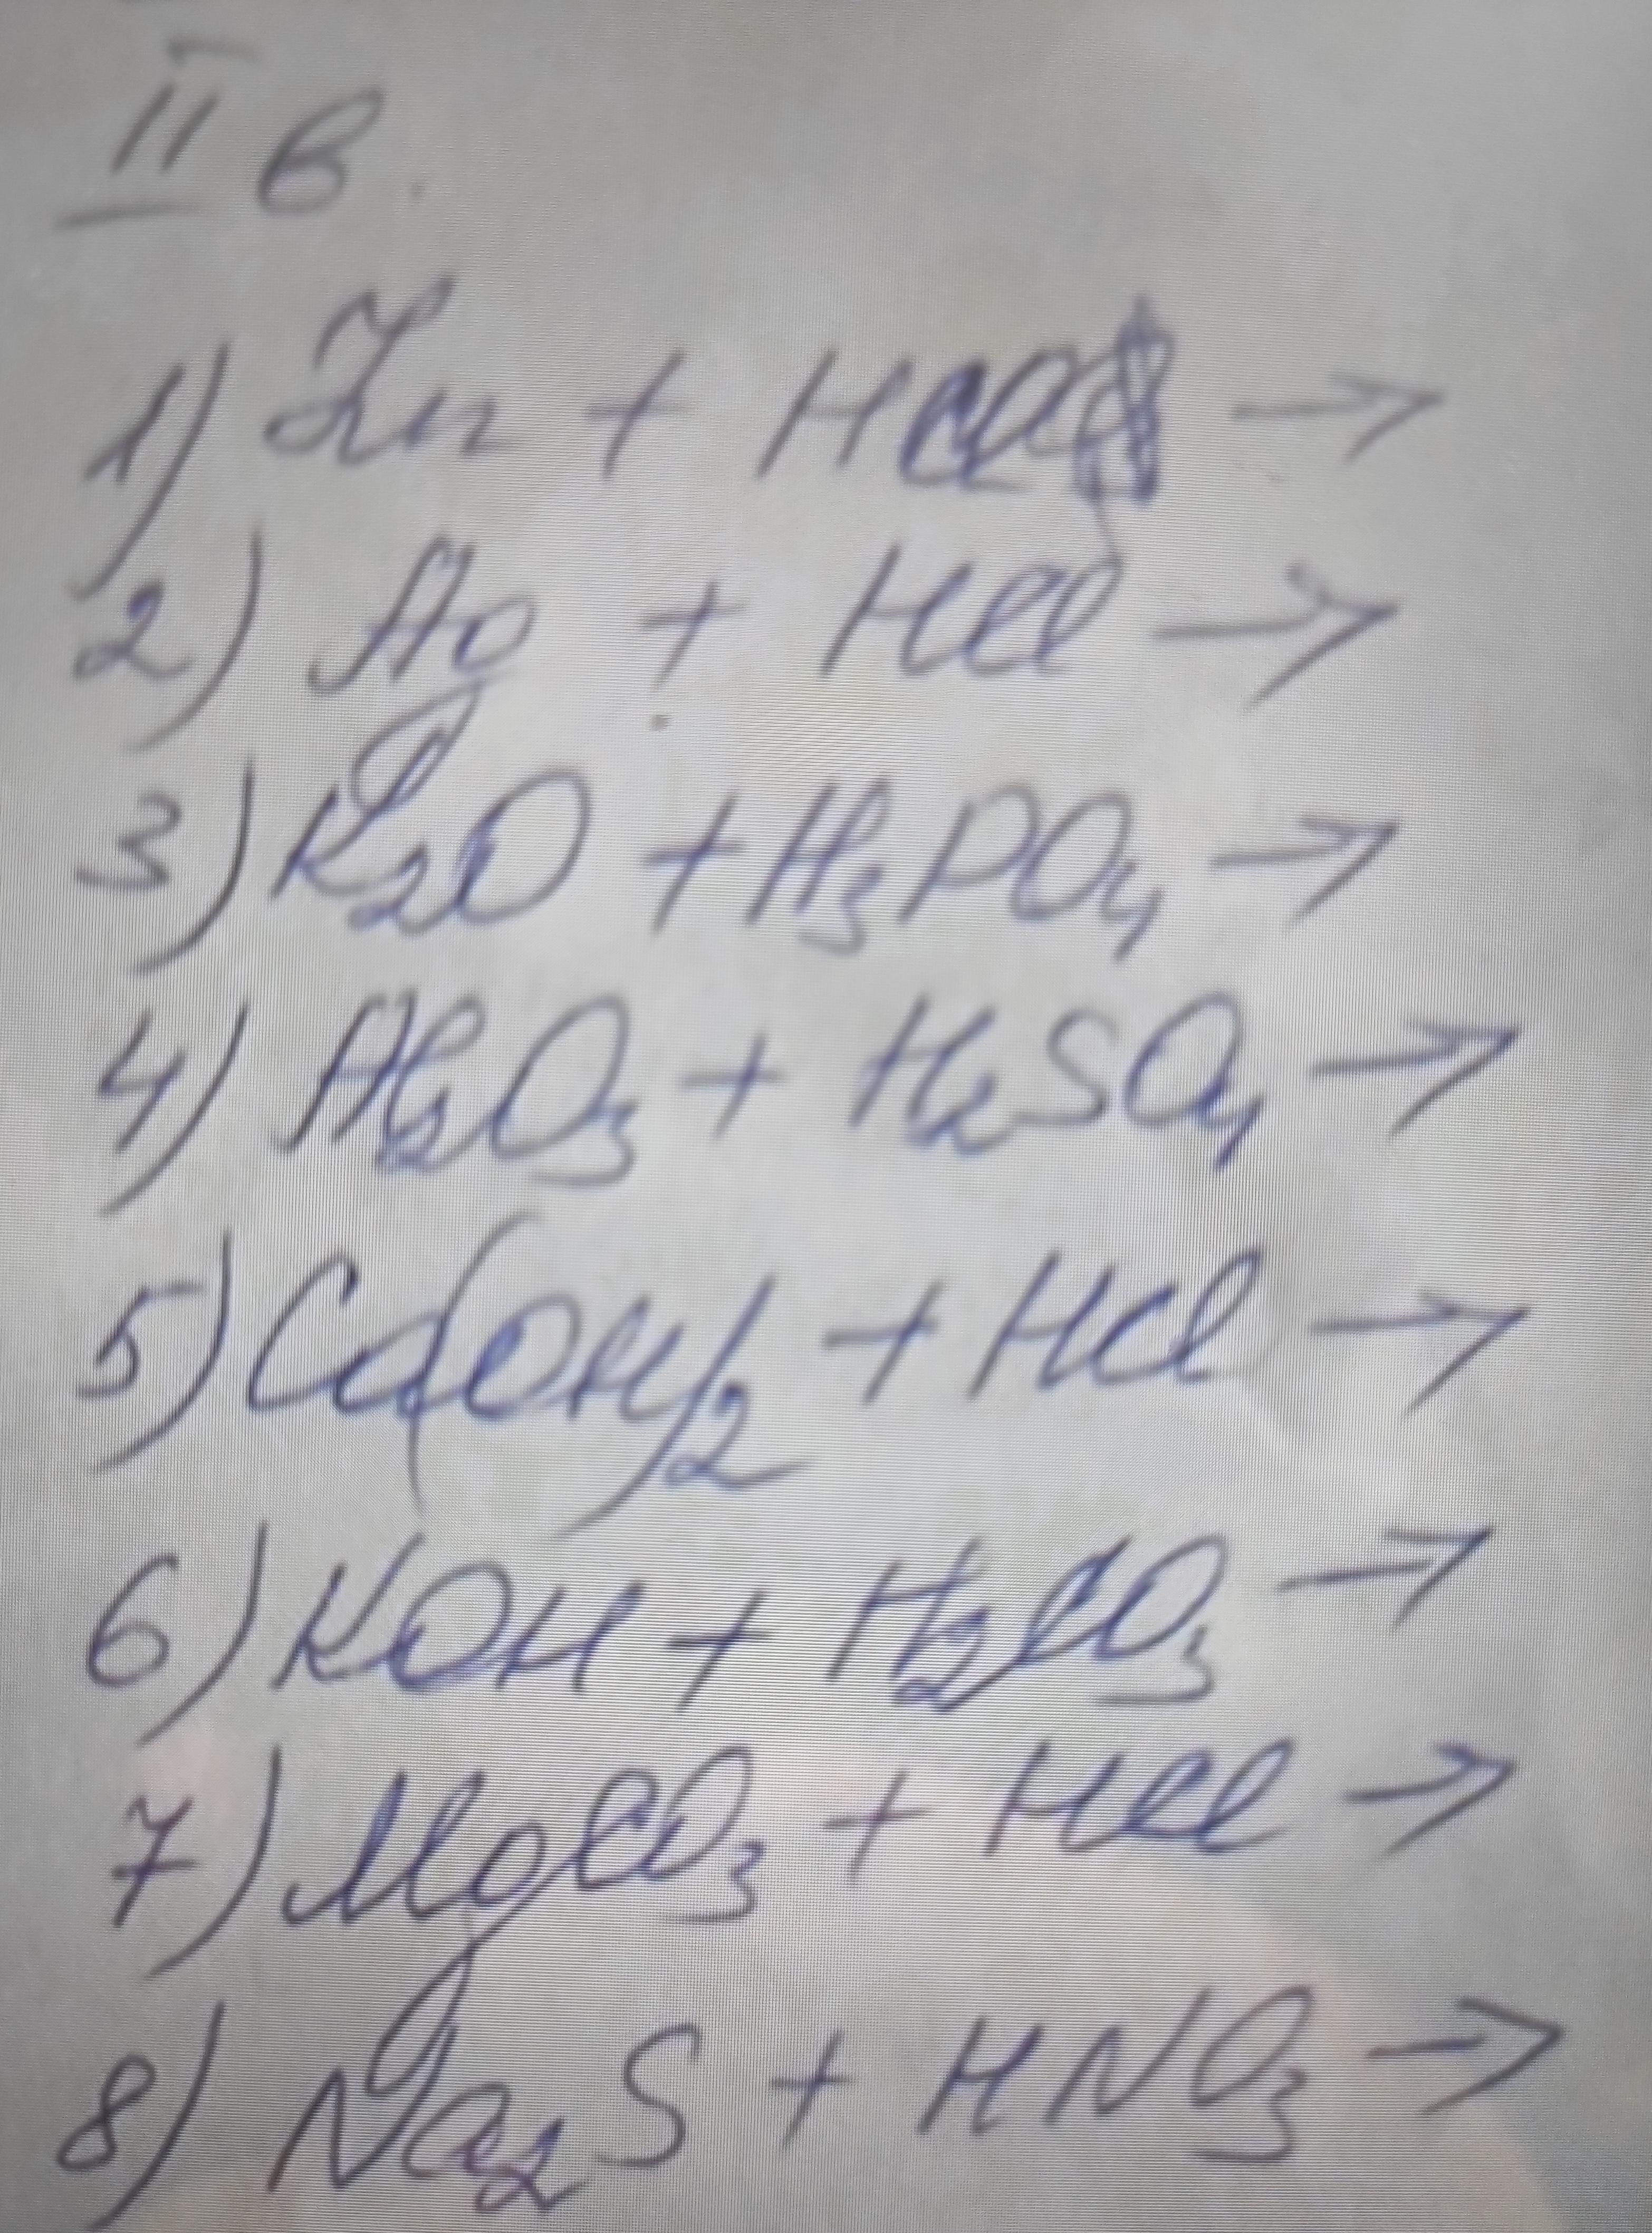 II в.
1) Zn + HCl →
2) Ag + HCl →
3) K₂O + H₃PO₄ →
4) Al₂O₃ + H₂SO₄ →
5) Ca(OH)₂ + HCl →
6) KOH + H₂CO₃ →
7) MgCO₃ + HCl →
8) Na₂S + HNO₃ →